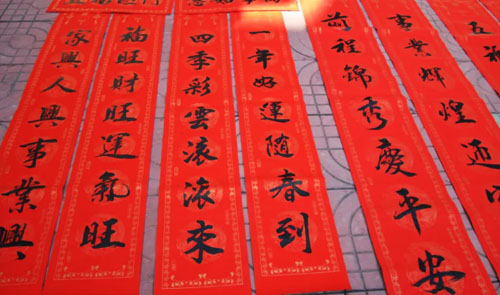 五福
事業輝煌迎
前程錦秀慶平安
一年好運隨春到
四季彩雲滾滾來
福旺財旺運氣旺
家興人興事業興